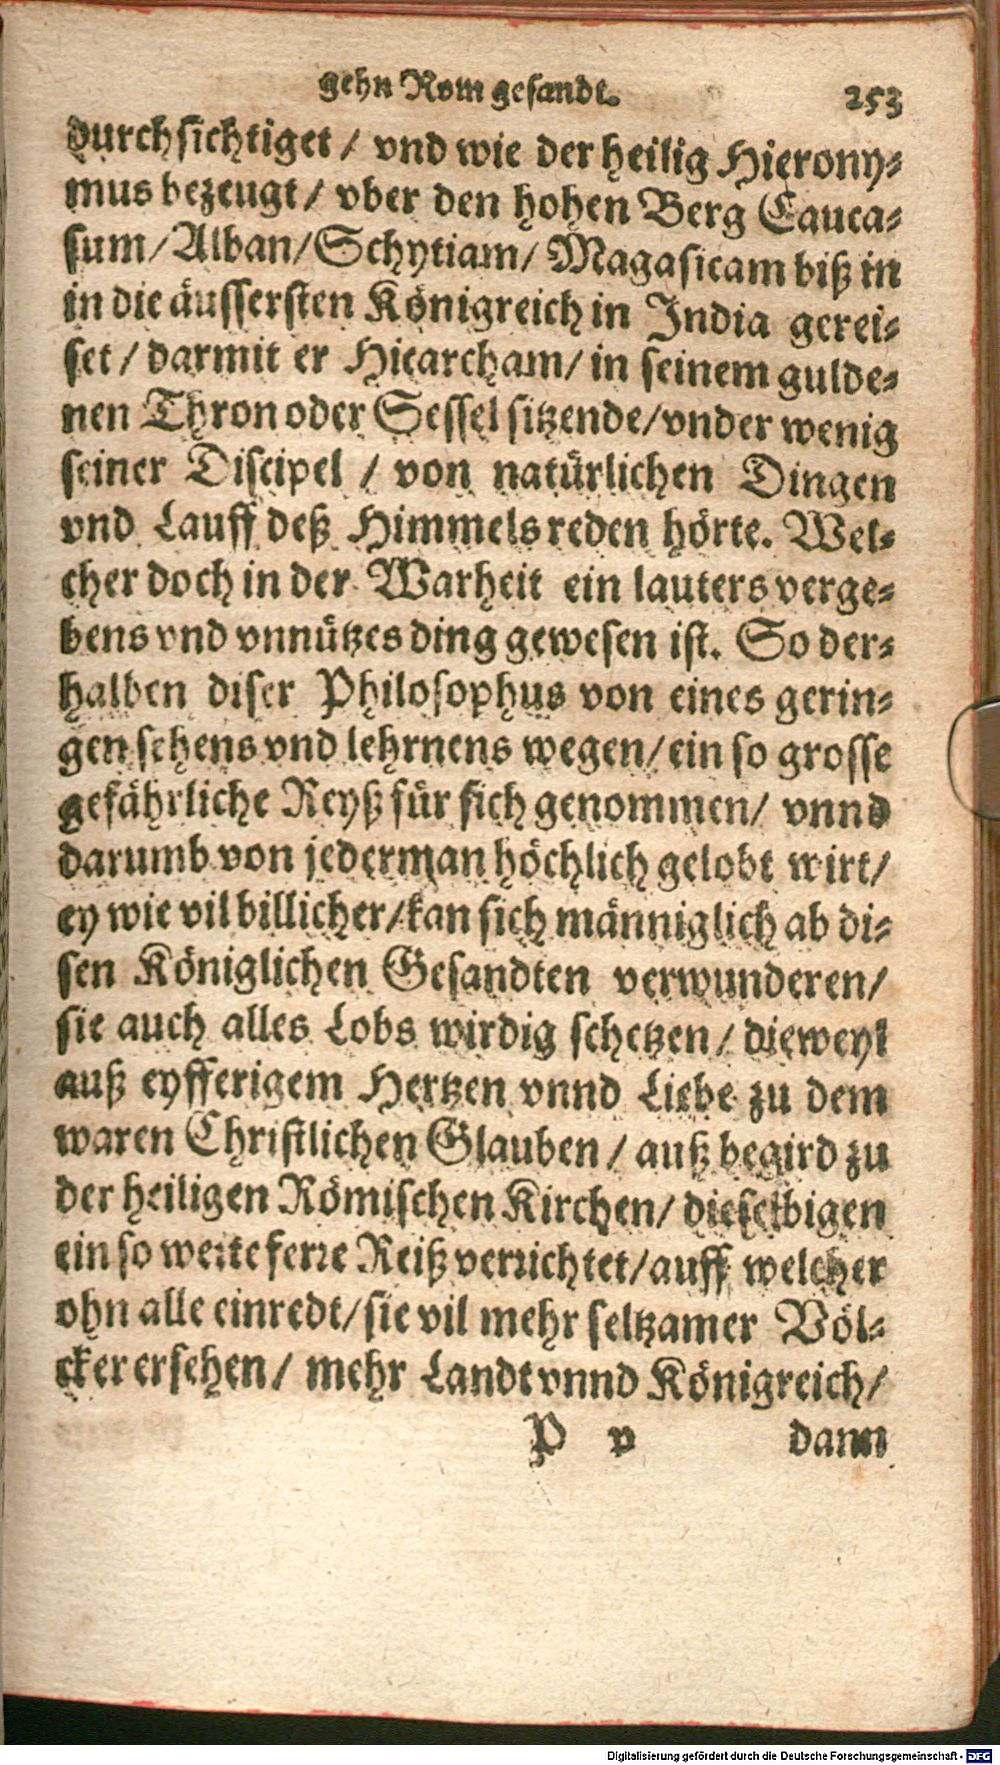 gehn Rom gesandt. 253
durchsichtiget / vnd wie der heilig Hierony⸗
mus bezeugt / vber den hohen Berg Cauca⸗
sum / Alban / Schytiam / Magasicam biß in
in die äussersten Königreich in India gerei⸗
set / darmit er Hiearcham / in seinem gulde⸗
nen Thron oder Sessel sitzende / vnder wenig
seiner Discipel / von natürlichen Dingen
vnd Lauff deß Himmels reden hörte. Wel⸗
cher doch in der Warheit ein lauters verge⸗
bens vnd vnnützes ding gewesen ist. So der⸗
halben diser Philosophus von eines gerin⸗
gen sehens vnd lehrnens wegen / ein so grosse
gefährliche Reyß für sich genommen / vnnd
darumb von jederman höchlich gelobt wirt /
ey wie vil billicher / kan sich männiglich ab di⸗
sen Königlichen Gesandten verwunderen /
sie auch alles Lobs wirdig schetzen / dieweyl
auß eyfferigem Hertzen vnnd Liebe zu dem
waren Christlichen Glauben / auß begird zu
der heiligen Römischen Kirchen / dieselbigen
ein so weite ferre Reiß verrichtet / auff welcher
ohn alle einredt / sie vil mehr seltzamer Völ⸗
cker ersehen / mehr Landt vnnd Königreich /
P v dann
Digitalisierung gefördert durch die Deutsche Forschungsgemeinschaft - DFG